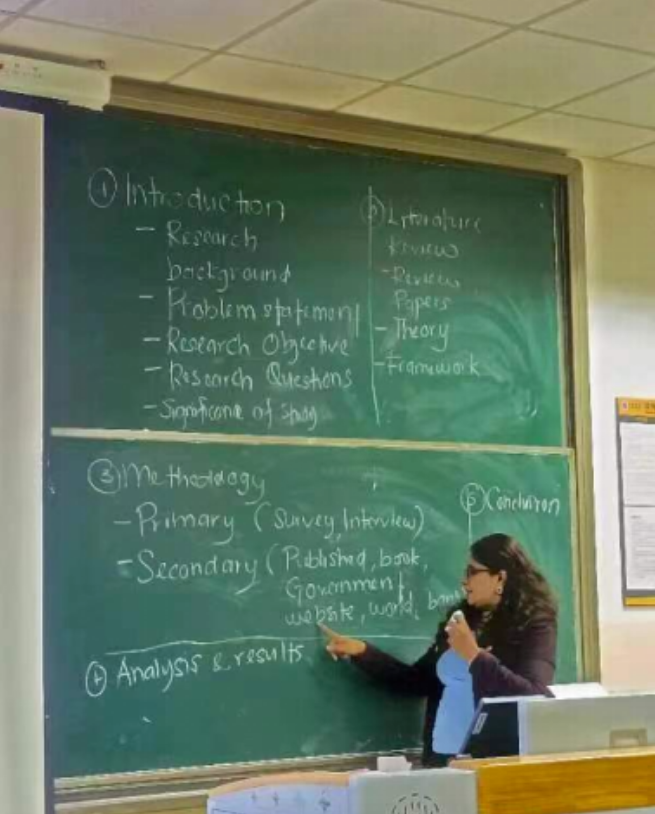 ① Introduction
- Research
background
- Problem statement
- Research Objective
- Research Questions
- Significane of study
② Literature
Review
- Review
Papers
- Theory
- Framework
③ Methodology
- Primary (Survey, Interview)
- Secondary (Published, book,
Government
website, world, ban
④ Analysis & results
⑤ Conclusion